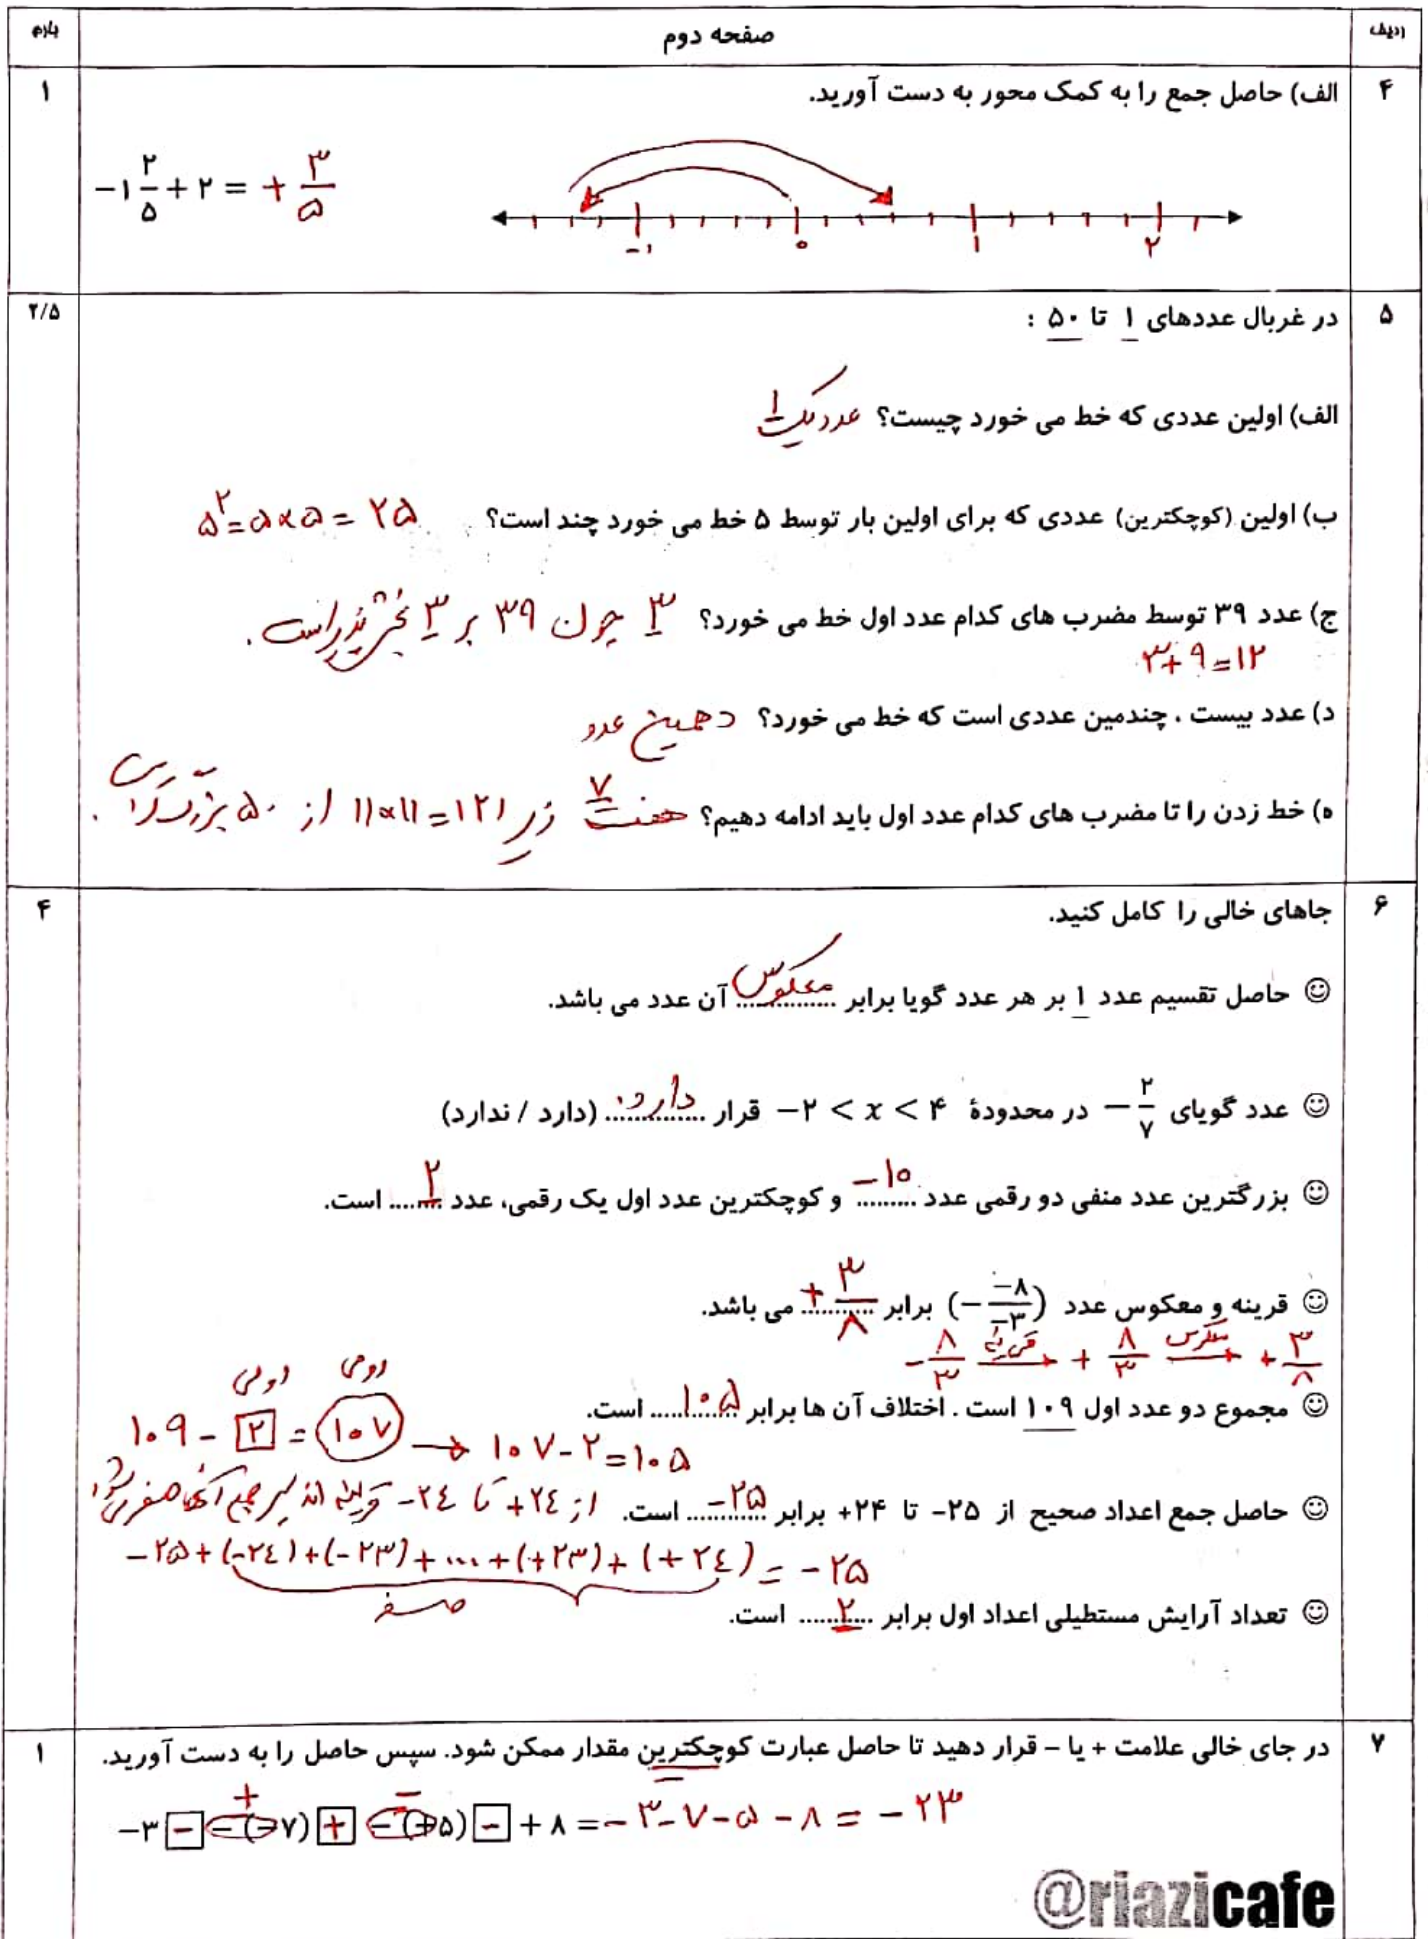 ردیف صفحه دوم بارم
۴ الف) حاصل جمع را به کمک محور به دست آورید. ۱
-۱ ۲/۵ + ۲ = + ۳/۵
-۱ ۰ ۱ ۲
۵ در غربال عددهای ۱ تا ۵۰ : ۲/۵
الف) اولین عددی که خط می خورد چیست؟ عدد یک ۱
ب) اولین (کوچکترین) عددی که برای اولین بار توسط ۵ خط می خورد چند است؟ ۵^۲=۵×۵=۲۵
ج) عدد ۳۹ توسط مضرب های کدام عدد اول خط می خورد؟ ۳ چون ۳۹ بر ۳ بخش پذیر است.
۳+۹=۱۲
د) عدد بیست ، چندمین عددی است که خط می خورد؟ دهمین عدد
ه) خط زدن را تا مضرب های کدام عدد اول باید ادامه دهیم؟ هفت ۷ زیرا ۱۱×۱۱=۱۲۱ از ۵۰ بزرگتر است.
۶ جاهای خالی را کامل کنید. ۴
☺ حاصل تقسیم عدد ۱ بر هر عدد گویا برابر معکوس آن عدد می باشد.
☺ عدد گویای -۲/۷ در محدودهٔ -۲ < x < ۴ قرار دارد. (دارد / ندارد)
☺ بزرگترین عدد منفی دو رقمی عدد -۱۰ و کوچکترین عدد اول یک رقمی، عدد ۲ است.
☺ قرینه و معکوس عدد (-۸/-۳)- برابر +۳/۸ می باشد.
-۸/۳ قرینه → +۸/۳ معکوس → +۳/۸
☺ مجموع دو عدد اول ۱۰۹ است . اختلاف آن ها برابر ۱۰۵ است.
اولی دومی
۱۰۹ - ۲ = ۱۰۷ → ۱۰۷-۲=۱۰۵
☺ حاصل جمع اعداد صحیح از -۲۵ تا +۲۴ برابر -۲۵ است. از +۲۴ تا -۲۴ قرینه اند پس جمع آنها صفر می شود
-۲۵+(-۲۴)+(-۲۳)+...+(+۲۳)+(+۲۴) = -۲۵
صفر
☺ تعداد آرایش مستطیلی اعداد اول برابر ۲ است.
۷ در جای خالی علامت + یا - قرار دهید تا حاصل عبارت کوچکترین مقدار ممکن شود. سپس حاصل را به دست آورید. ۱
+ -
-۳ - -(-۷) + -(+۵) - +۸ = -۳-۷-۵-۸ = -۲۳
@riazicafe